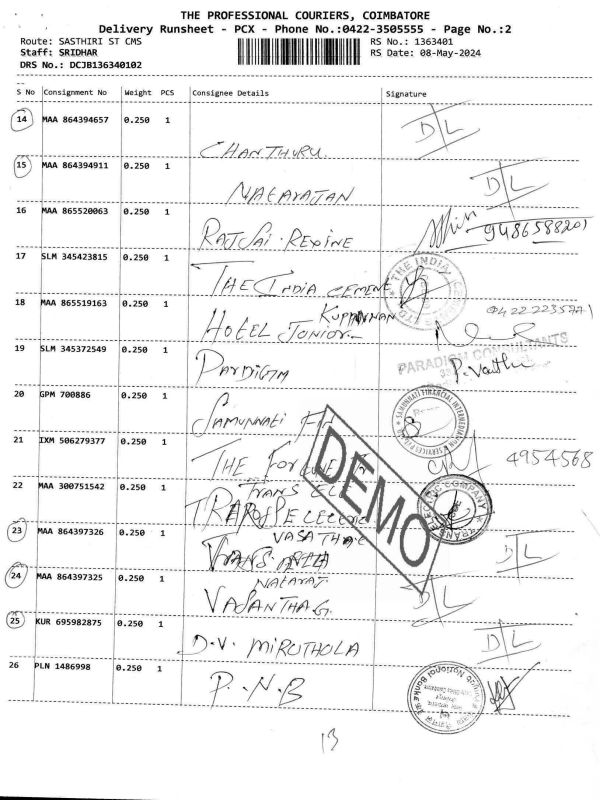 THE PROFESSIONAL COURIERS, COIMBATORE
Delivery Runsheet - PCX - Phone No.:0422-3505555 - Page No.:2
Route: SASTHIRI ST CMS RS No.: 1363401
Staff: SRIDHAR RS Date: 08-May-2024
DRS No.: DCJB136340102
S No Consignment No Weight PCS Consignee Details Signature
14 MAA 864394657 0.250 1 D/L
CHANTHURU
15 MAA 864394911 0.250 1 D/L
NATARAJAN
16 MAA 865520063 0.250 1 9486588201
RAJSAI REXINE
17 SLM 345423815 0.250 1 THE INDIA
THE INDIA CEMENT
18 MAA 865519163 0.250 1 KUPPANNAN
HOTEL JUNIOR
19 SLM 345372549 0.250 1 PARADIGM CONSULTANTS
PARDIGM P. Vasthu
20 GPM 700886 0.250 1 SAMUNNATI FINANCIAL INTERMEDIATION
SAMUNNATI
21 IXM 506279377 0.250 1 4954568
THE
DEMO
22 MAA 300751542 0.250 1 TRANS COMPANY
23 MAA 864397326 0.250 1 D/L
24 MAA 864397325 0.250 1 NATARAJ D/L
VASANTHAG
25 KUR 695982875 0.250 1 D/L
D.V. MIRUTHOLA
26 PLN 1486998 0.250 1 Punjab National Bank
P.N.B
13